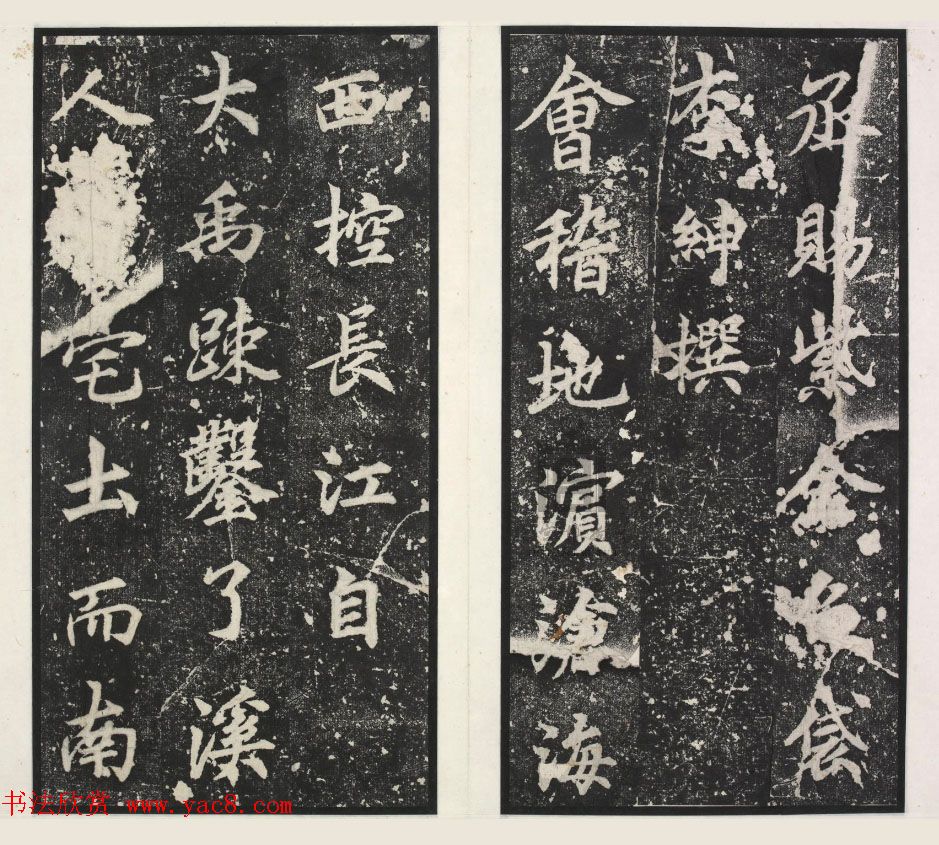 丞賜紫金魚袋
李紳撰
會稽地濵滄海
西控長江自
大禹疎鑿了溪
人宅土而南
书法欣赏 www.yac8.com